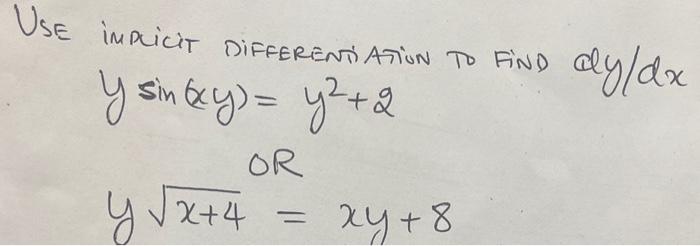 USE IMPLICIT DIFFERENTIATION TO FIND dy/dx
y sin(xy) = y²+2
OR
y √x+4 = xy+8